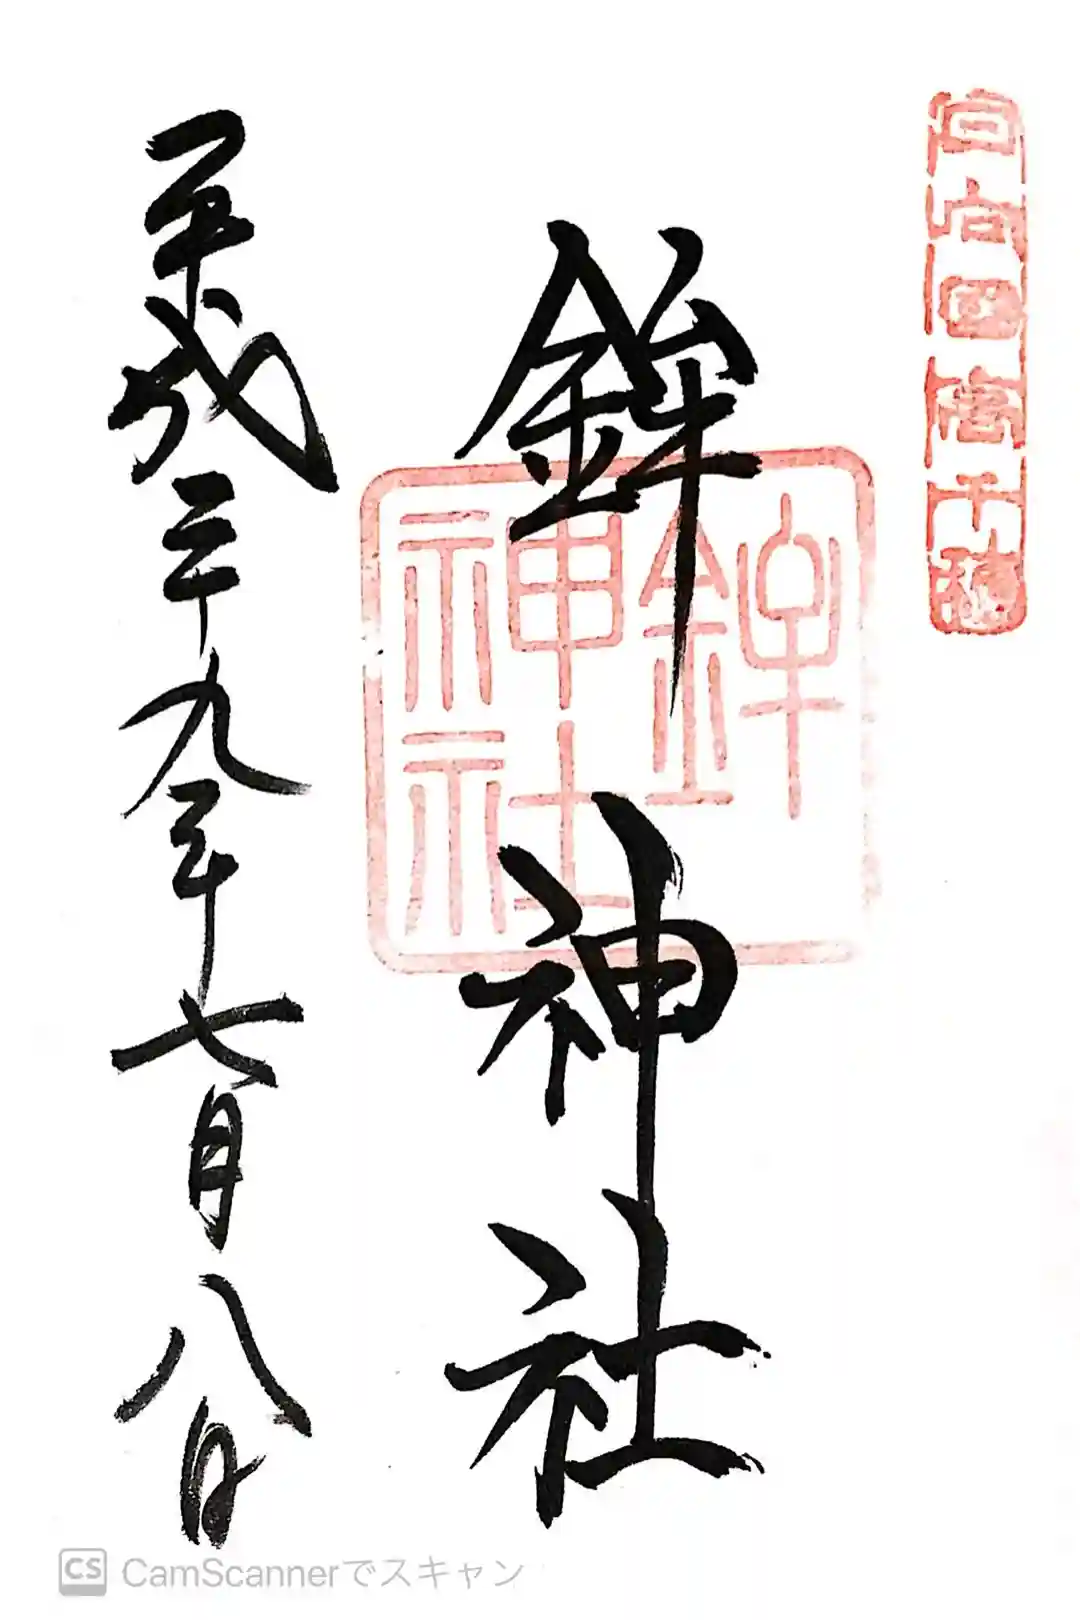 高千穂
鉾神社
鉾
神社
平成二十九年七月八日
CS CamScannerでスキャン